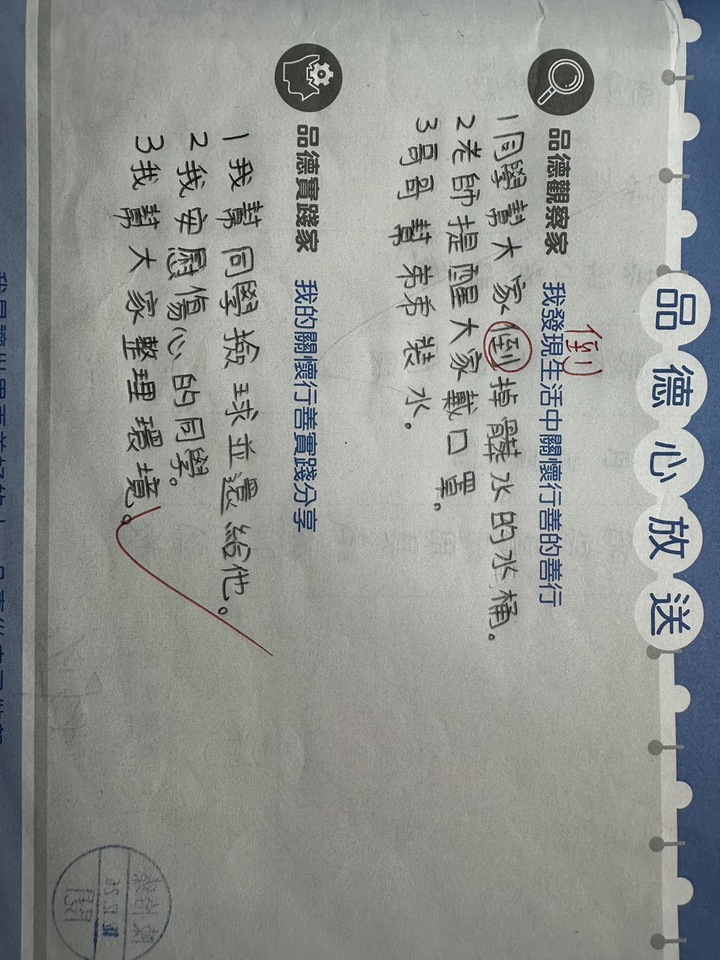 品德心放送
品德觀察家 我發現生活中關懷行善的善行
倒
1同學幫大家倒掉髒水的水桶。
2老師提醒大家戴口罩。
3哥哥幫弟弟裝水。
品德實踐家 我的關懷行善實踐分享
1我幫同學撿球並還給他。
2我安慰傷心的同學。
3我幫大家整理環境。
閱